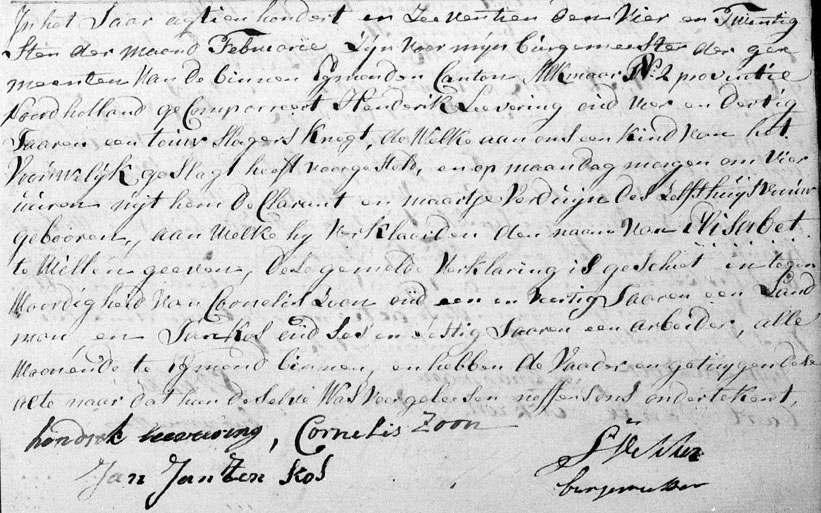 In het Jaar agtien hondert en Zeeventien den Vier en Twentig
sten der maand Februarie Zyn voor myn burgemeester der gem
meenten Van de binnen Egmonden Canton Alkmaar No 2 provintie
Noordholland geCompareert Henderik Leevering oud vier en dertig
Jaaren een touw slagers knegt, de Welke aan ons een kind van het
Vrouwelyk geslagt heeft voorgesteld, en op maandag morgen om Vier
uuren uyt hem de Clarant en maartje Verduijn des Zelfs huysvrouw
gebooren, aan Welke hy Verklaarden den naam Van Elisabet
te Willen geeven, deze gemelde Verklaring is geschiet in tegen
Woordigheid Van Cornelis Zoon oud een en Veertig Jaaren een Land
man, en Jan Kos oud Ses en Jaaren een arbeider, alle
Woonende te Egmond binnen, en hebben de Vaader en getuygen deze
acte naar dat hun deselve Was Voorgeleesen neffens ons ondertekent,
hendrik leevering, Cornelis Zoon
Jan Jantzen Kos
burgemeester